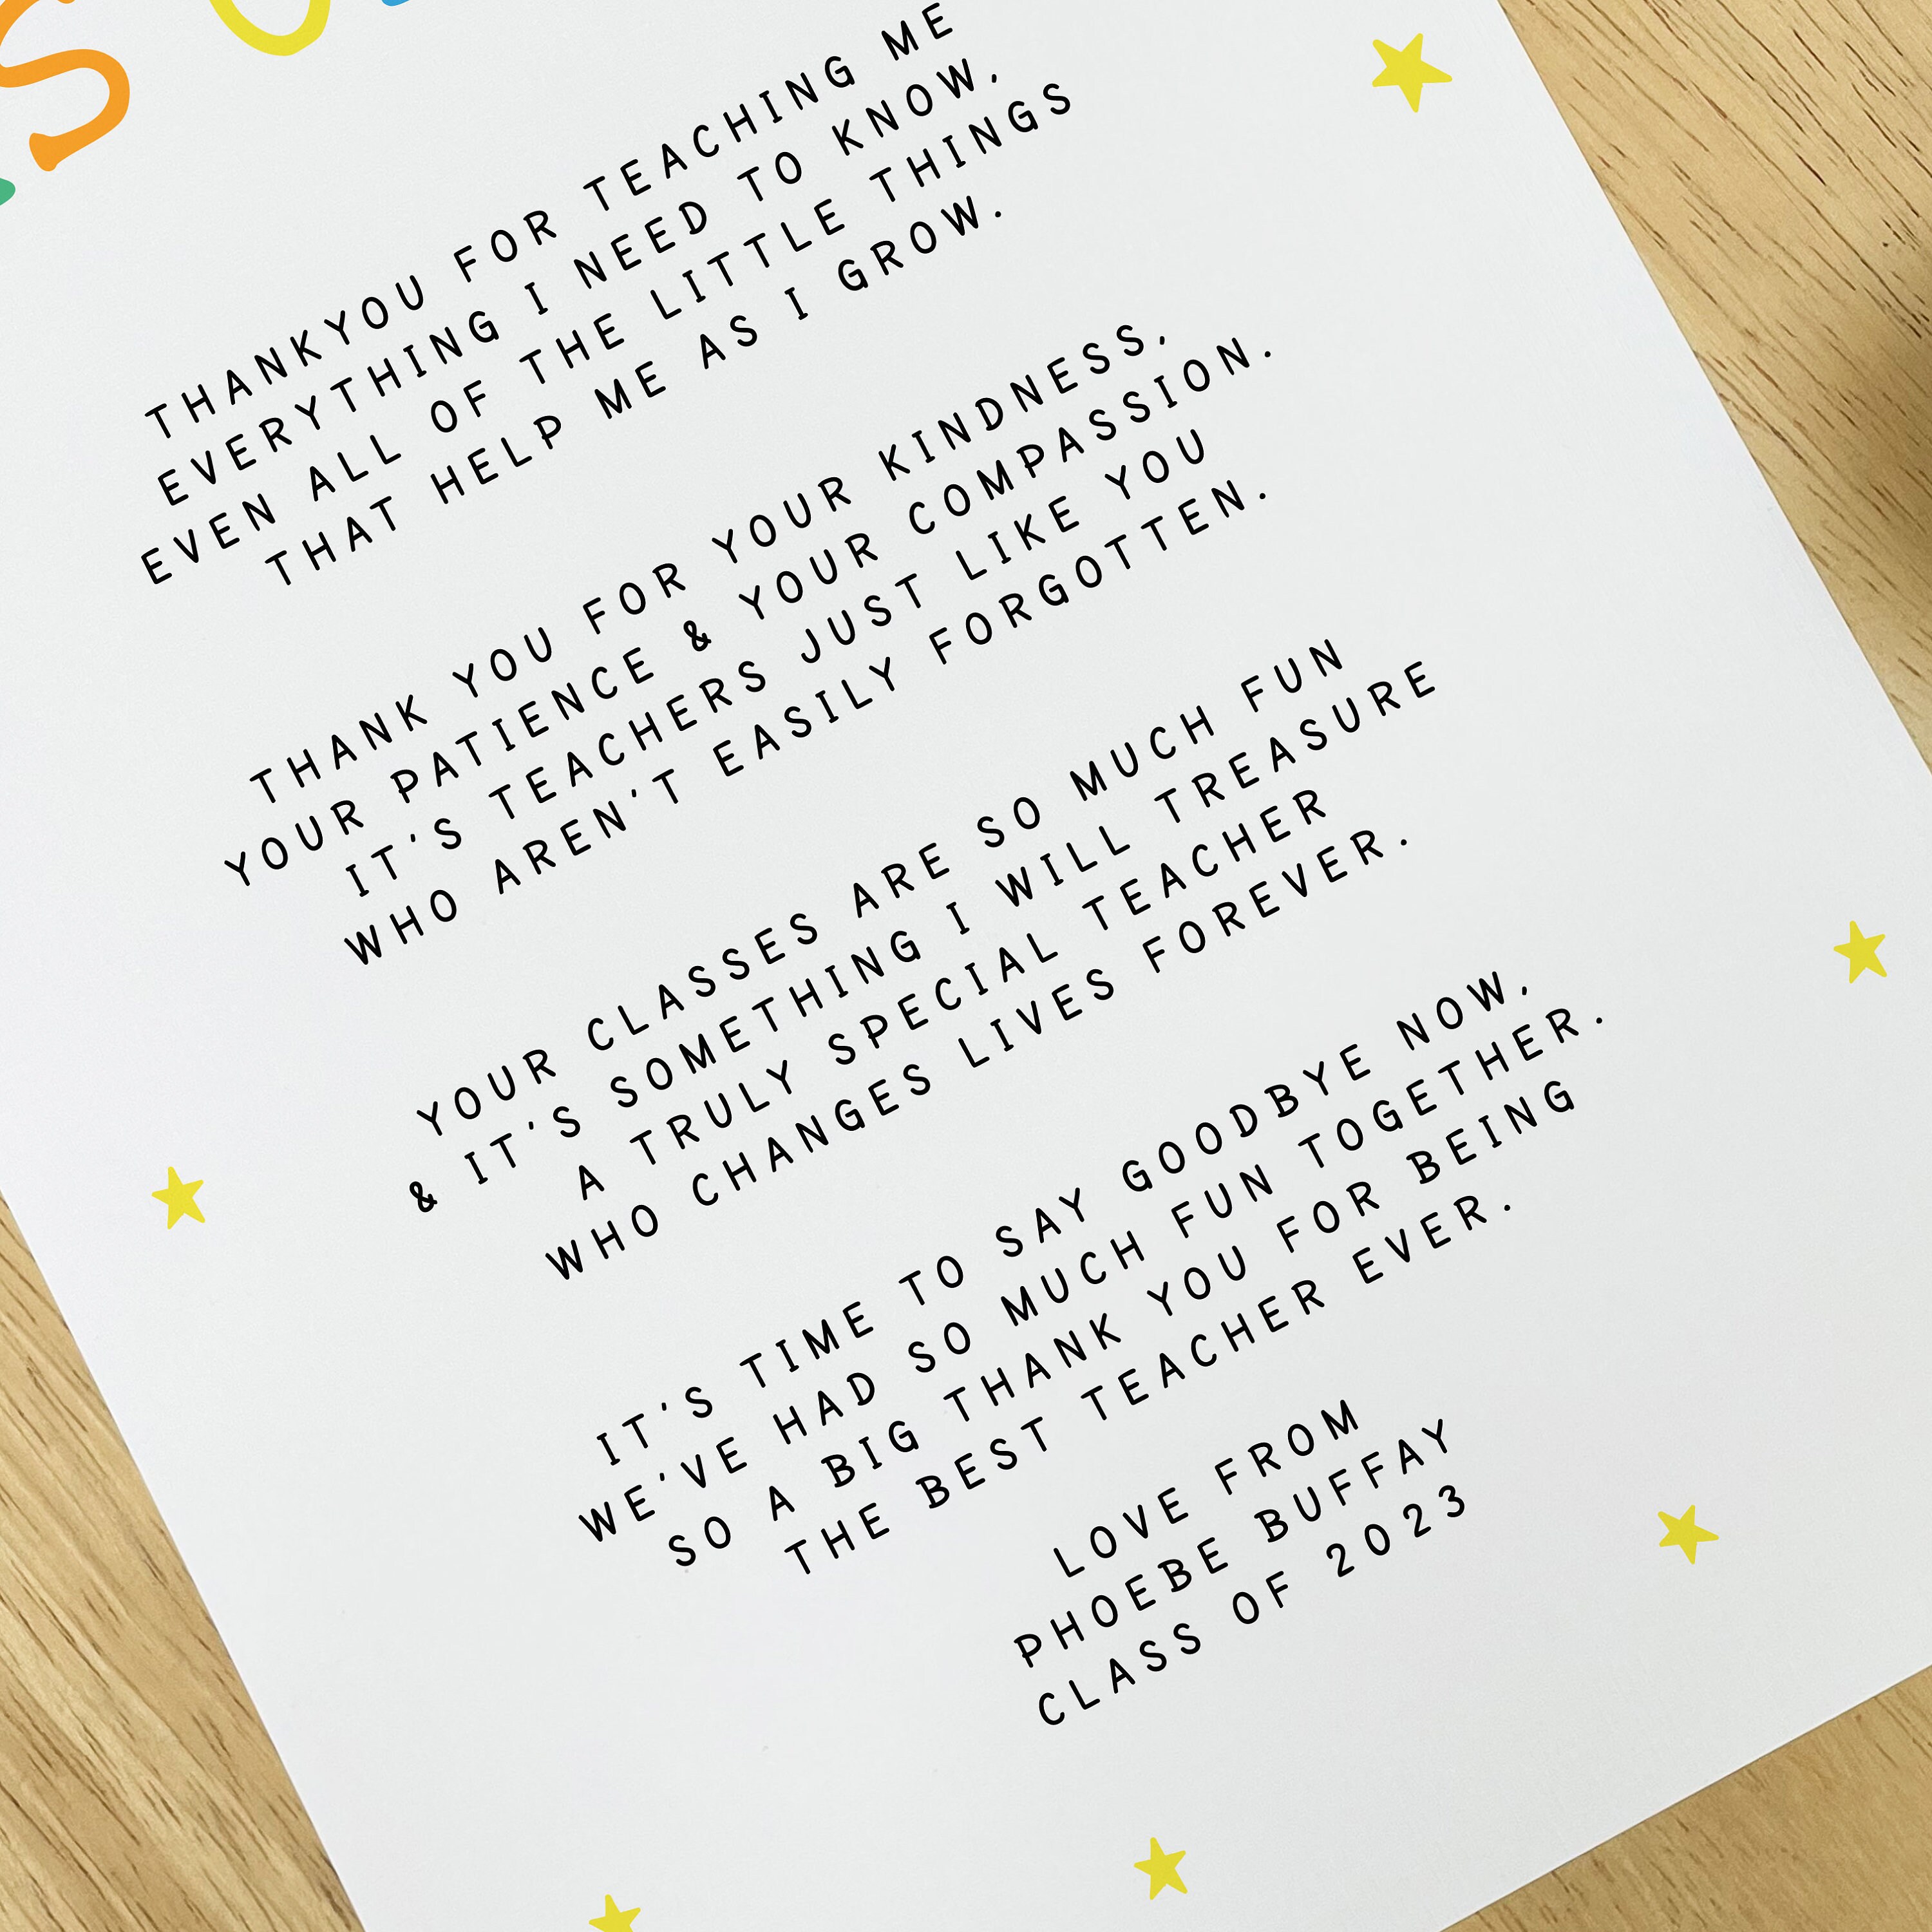 THANKYOU FOR TEACHING ME
EVERYTHING I NEED TO KNOW,
EVEN ALL OF THE LITTLE THINGS
THAT HELP ME AS I GROW.
THANK YOU FOR YOUR KINDNESS,
YOUR PATIENCE & YOUR COMPASSION.
IT'S TEACHERS JUST LIKE YOU
WHO AREN'T EASILY FORGOTTEN.
YOUR CLASSES ARE SO MUCH FUN
& IT'S SOMETHING I WILL TREASURE
A TRULY SPECIAL TEACHER
WHO CHANGES LIVES FOREVER.
IT'S TIME TO SAY GOODBYE NOW,
WE'VE HAD SO MUCH FUN TOGETHER.
SO A BIG THANK YOU FOR BEING
THE BEST TEACHER EVER.
LOVE FROM
PHOEBE BUFFAY
CLASS OF 2023